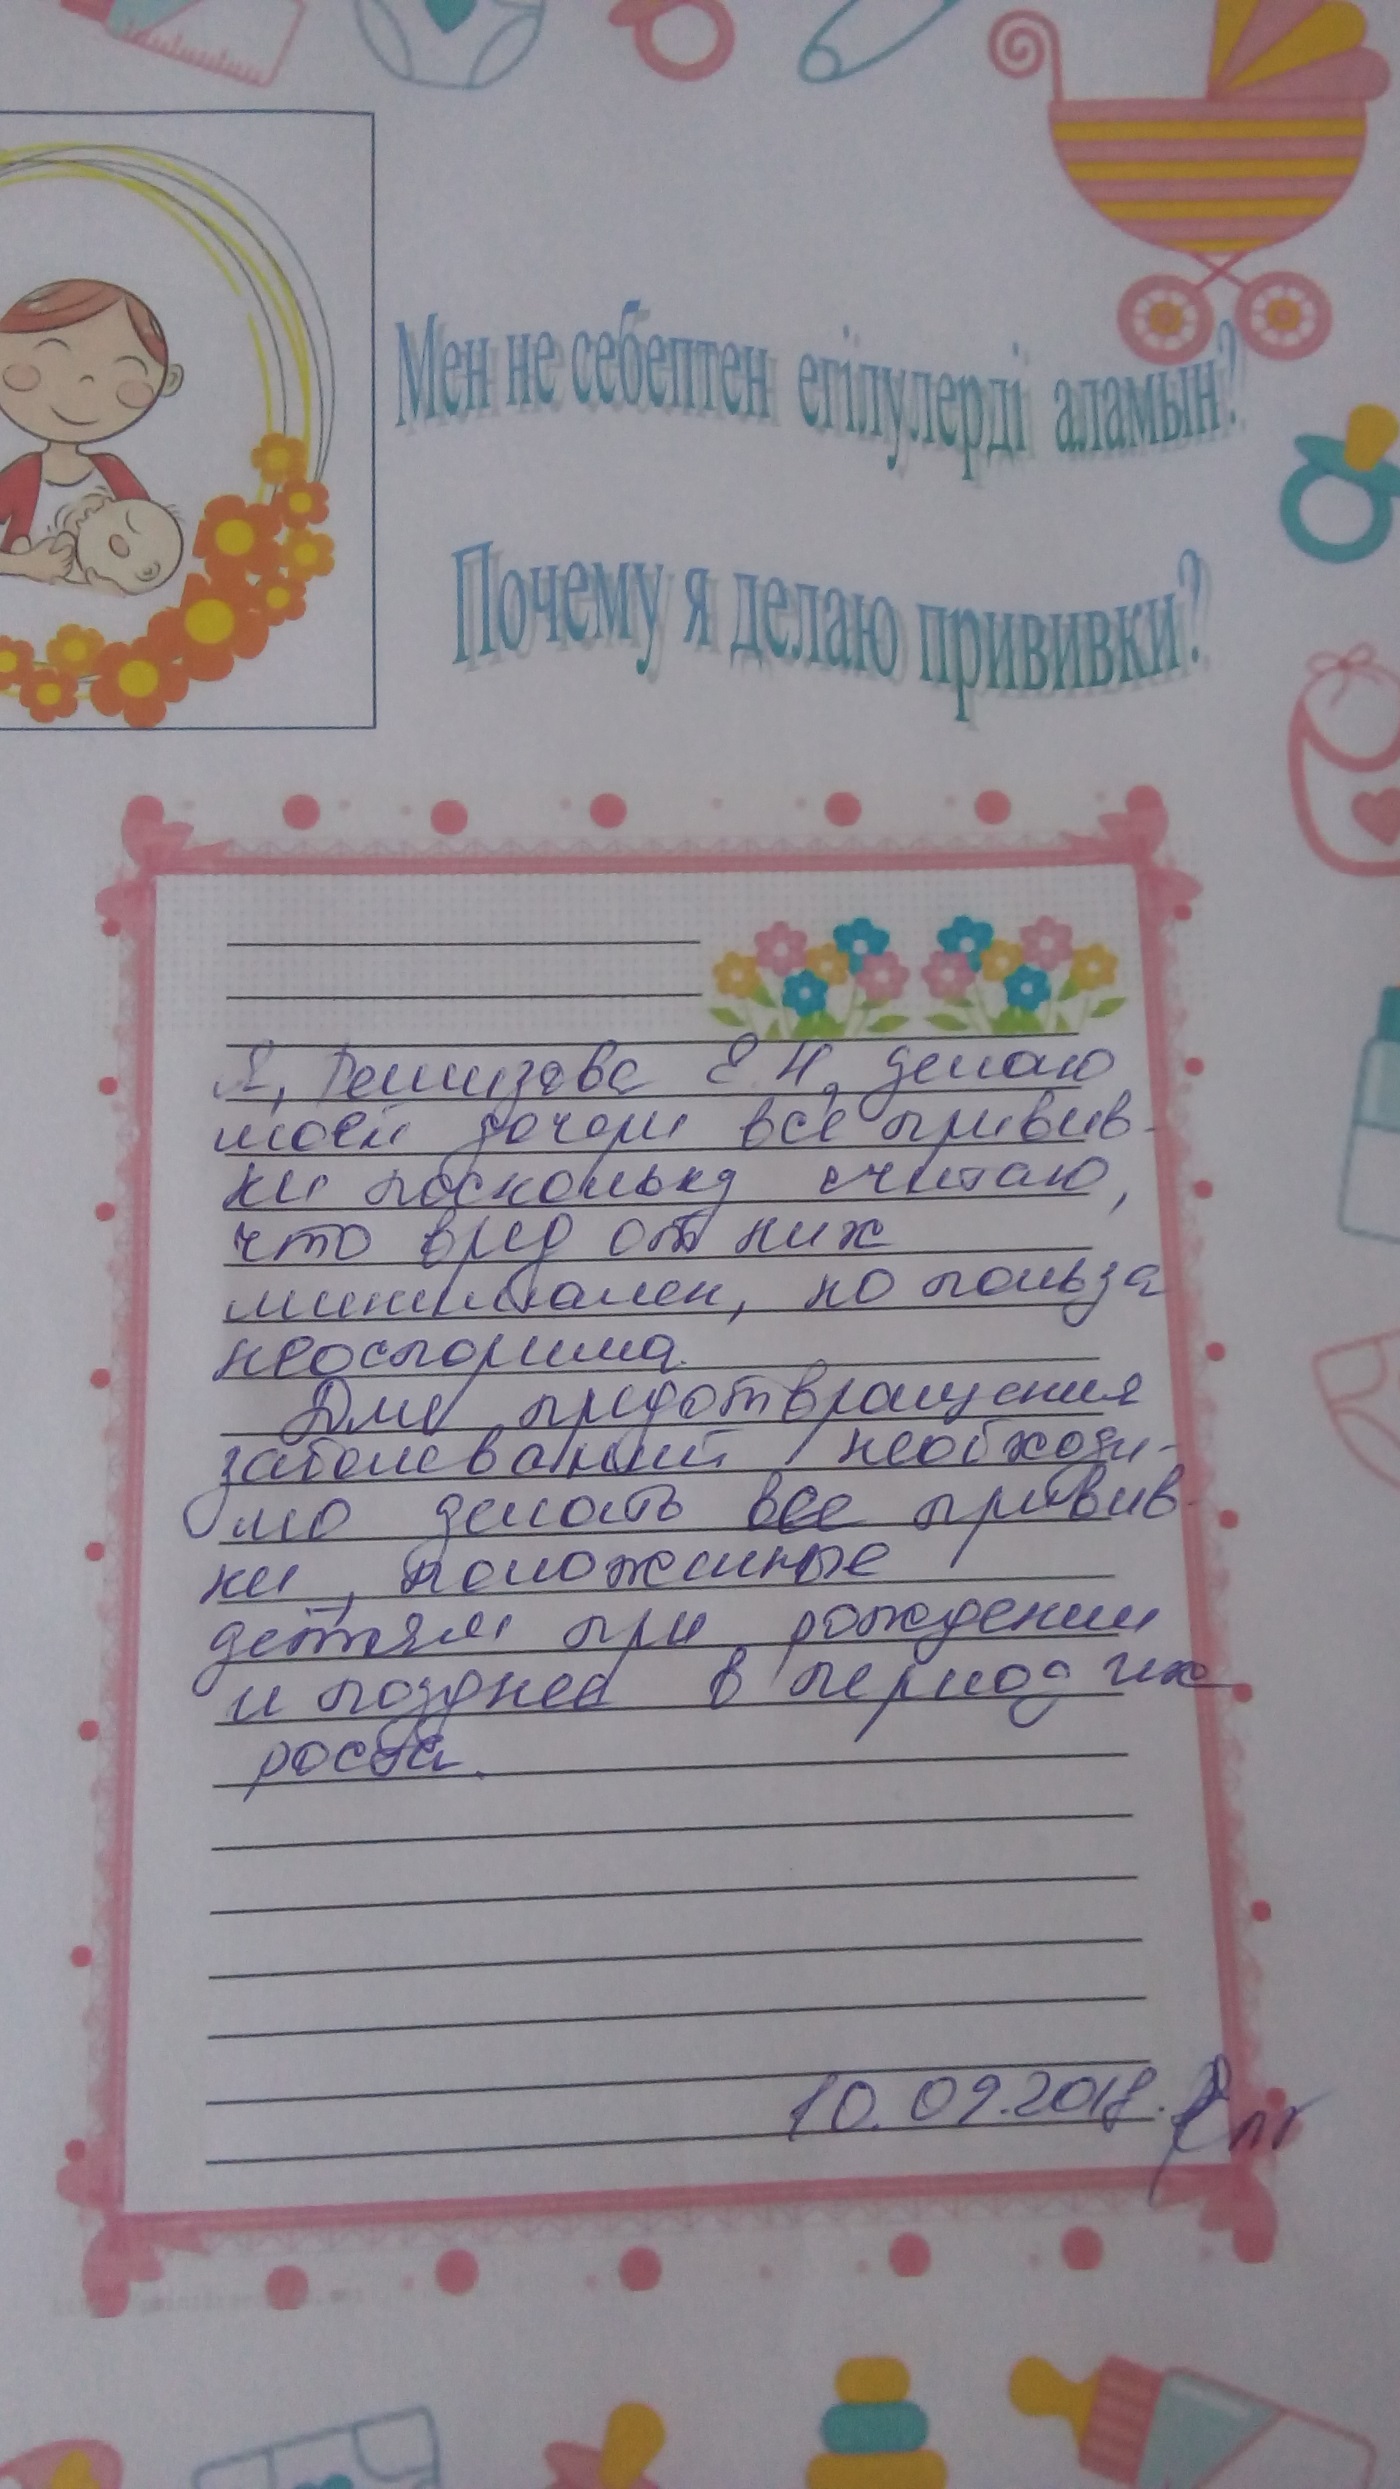 Мен не себептен егілулерді аламын?
Почему я делаю прививки?
Я, Е.Н, делаю
моей дочери все привив-
ки поскольку считаю,
что вред от них
минимален, но польза
неоспорима.
Для предотвращения
заболеваний необходи-
мо делать все привив-
ки, положенные
детям при рождении
и позднее в период их
роста.
10.09.2018.